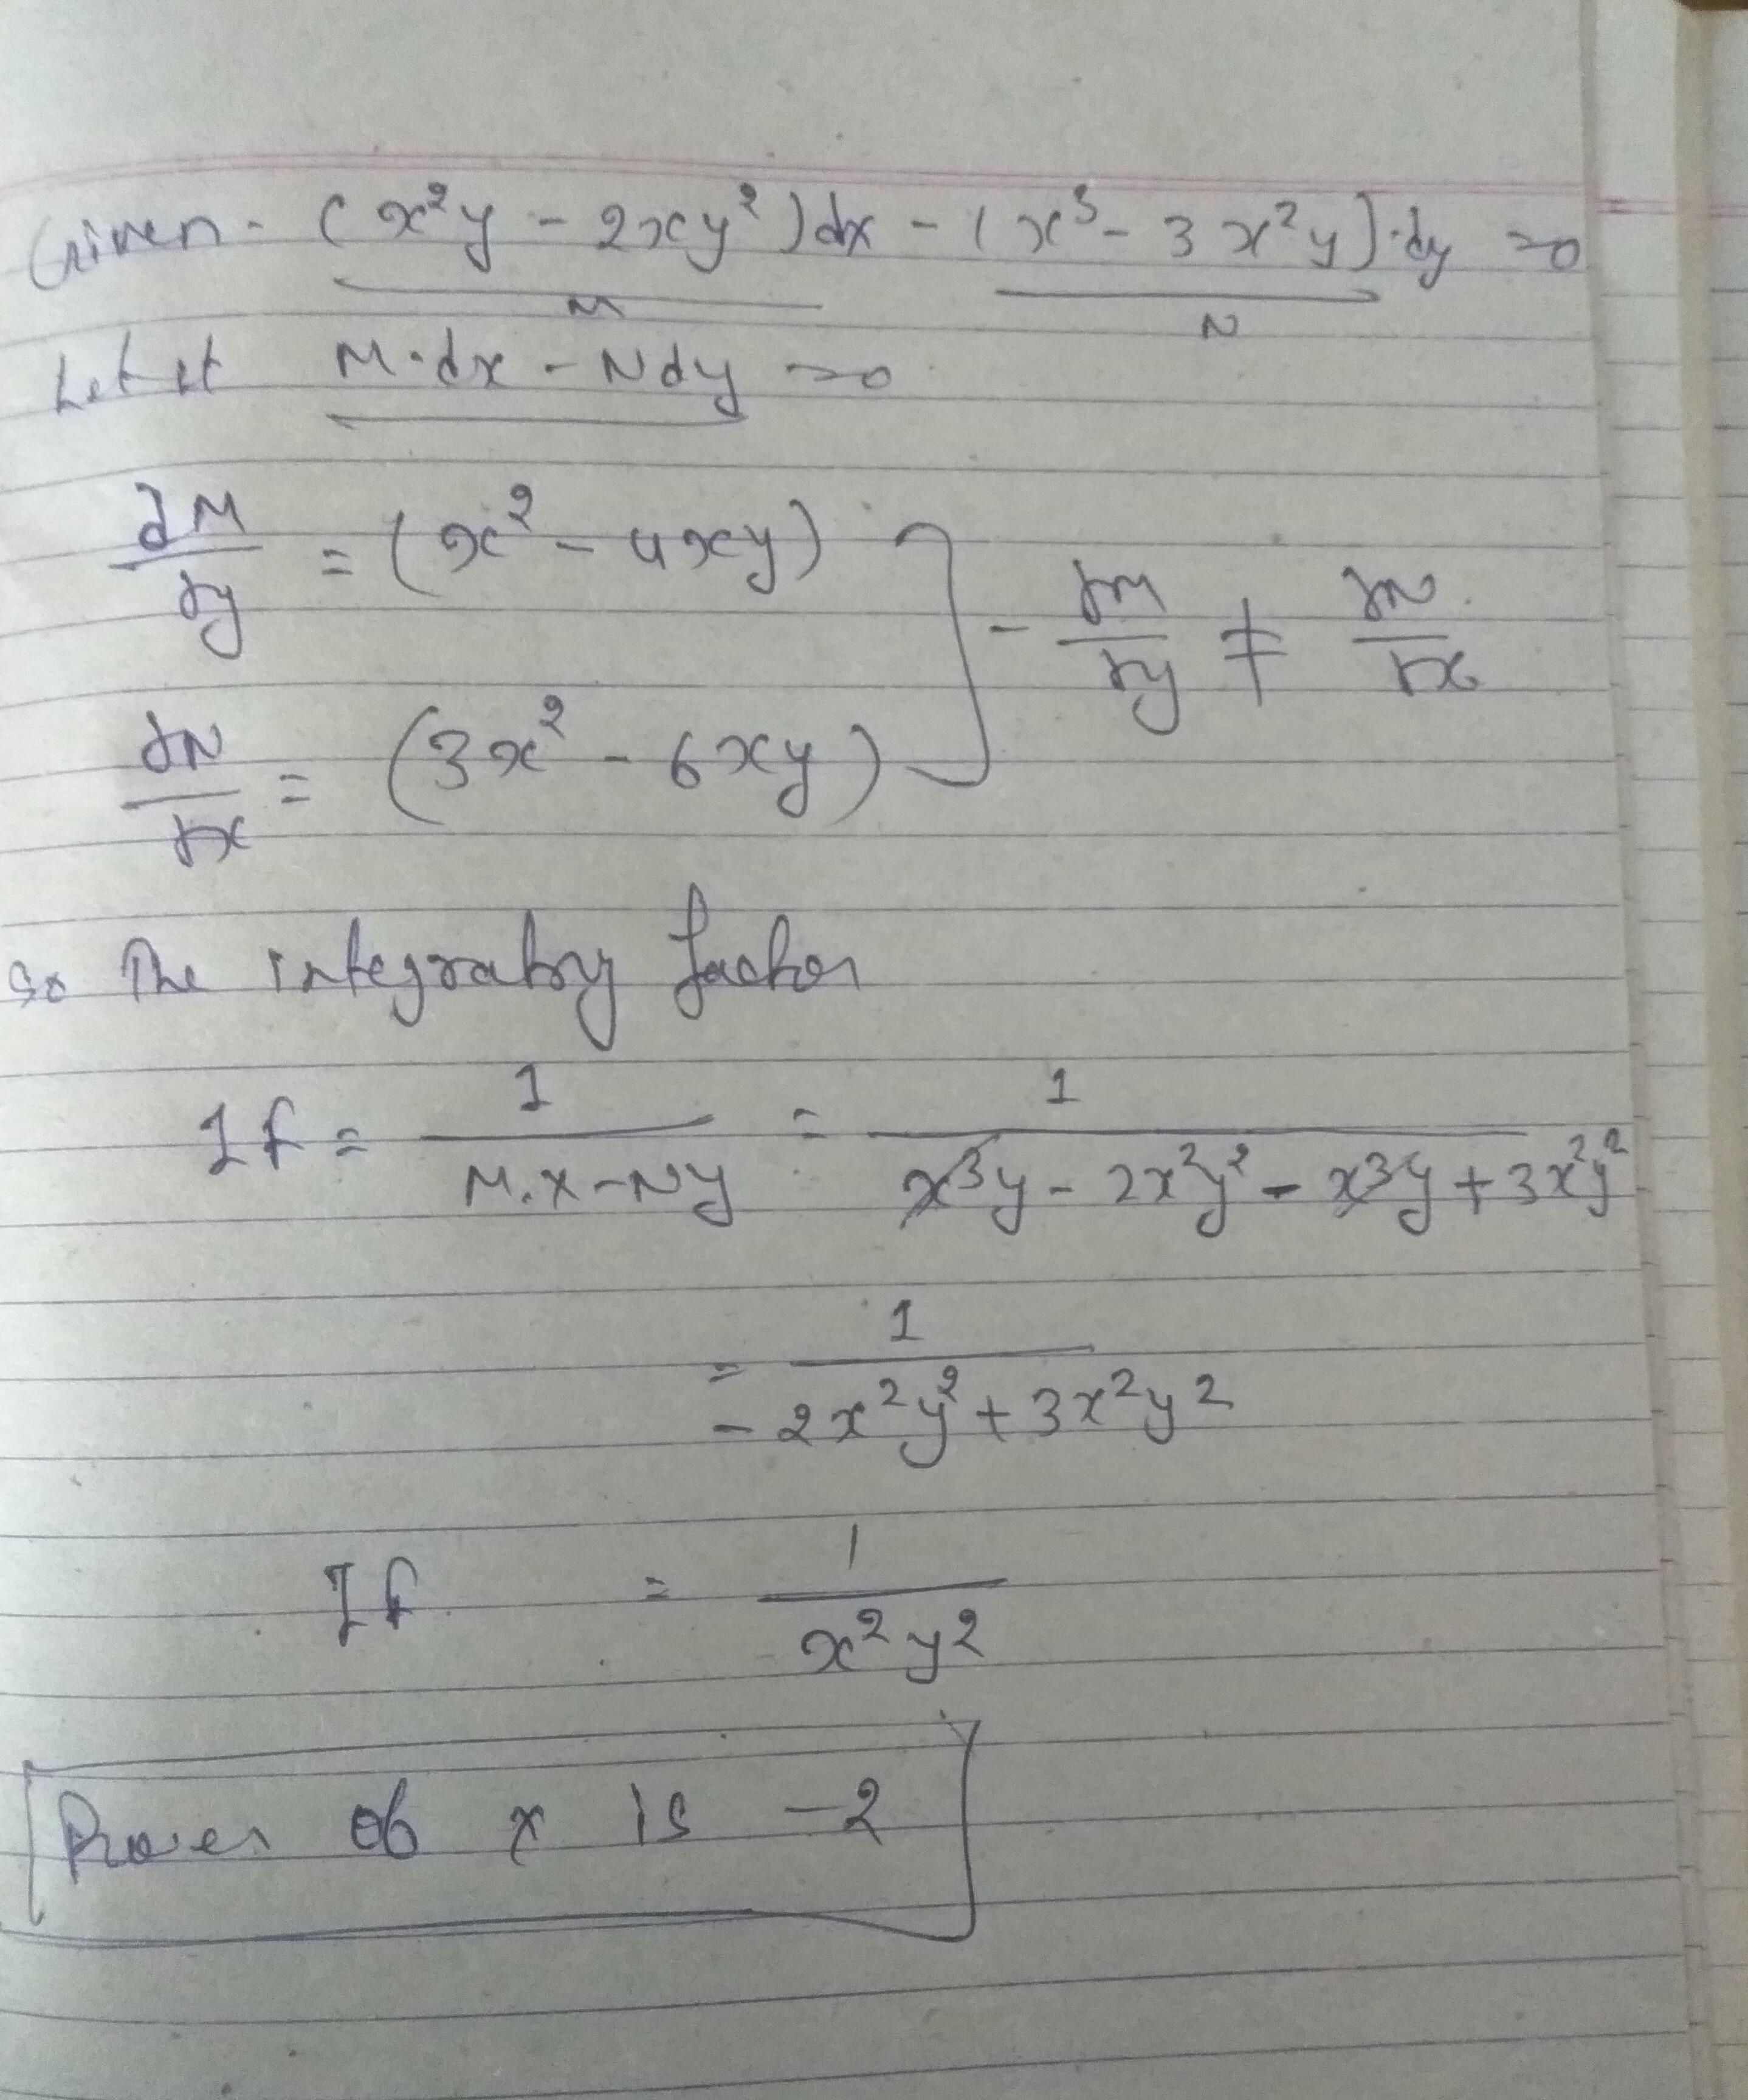 Given - (x²y - 2xy²)dx - (x³ - 3x²y)·dy = 0
M N
Let it M·dx - Ndy = 0
∂M/∂y = (x² - 4xy)
- ∂M/∂y ≠ ∂N/∂x
∂N/∂x = (3x² - 6xy)
So The integrating factor
If = 1/(M.x - Ny) = 1/(x³y - 2x²y² - x³y + 3x²y²)
= 1/(-2x²y² + 3x²y²)
If = 1/(x²y²)
Power of x is -2